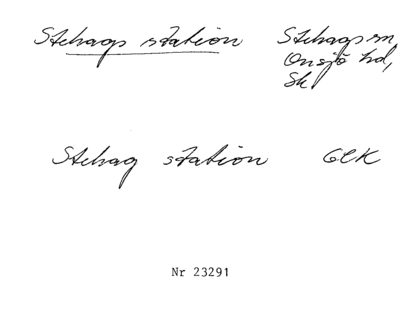 Stehags station
Stehags sn,
Onsjö hd,
Sk
Stehag station GCK
Nr 23291